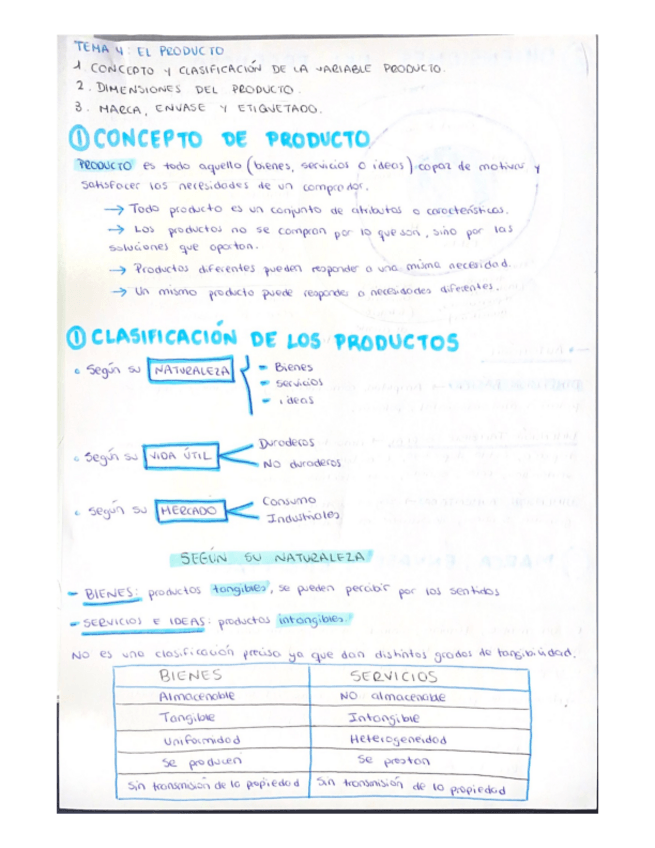 TEMA 4: EL PRODUCTO
1. CONCEPTO Y CLASIFICACIÓN DE LA VARIABLE PRODUCTO.
2. DIMENSIONES DEL PRODUCTO.
3. MARCA, ENVASE Y ETIQUETADO.
① CONCEPTO DE PRODUCTO
PRODUCTO es todo aquello (bienes, servicios o ideas) capaz de motivar y
satisfacer las necesidades de un comprador.
→ Todo producto es un conjunto de atributos o características.
→ Los productos no se compran por lo que son, sino por las
soluciones que aportan.
→ Productos diferentes pueden responder a una misma necesidad.
→ Un mismo producto puede responder a necesidades diferentes.
① CLASIFICACIÓN DE LOS PRODUCTOS
• Según su NATURALEZA
- Bienes
- servicios
- ideas
• Según su VIDA ÚTIL
Duraderos
NO duraderos
• Según su MERCADO
Consumo
Industriales
SEGÚN SU NATURALEZA
- BIENES: productos tangibles, se pueden percibir por los sentidos
- SERVICIOS E IDEAS: productos intangibles.
NO es una clasificación precisa ya que dan distintos grados de tangibilidad.
BIENES SERVICIOS
Almacenable NO almacenable
Tangible Intangible
Uniformidad Heterogeneidad
Se producen Se prestan
Sin transmisión de la propiedad Sin transmisión de la propiedad